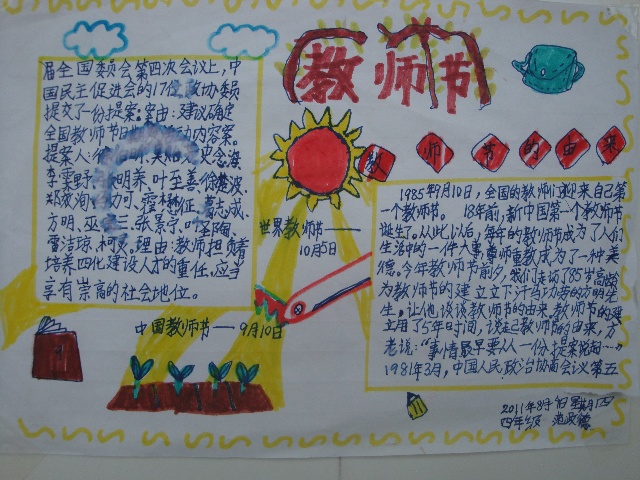 教师节
教师节的由来
届全国委员会第四次会议上,中
国民主促进会的17位政协委员
提交了一份提案:案由:建议确定
全国教师节日期及活动内容案。
提案人:
方明、
雷洁琼、柯灵、理由:教师担负着
培养四化建设人才的重任,应当
享有崇高的社会地位。
世界教师节——
10月5日
中国教师节——9月10日
1985年9月10日,全国的教师们迎来自己第
一个教师节。 18年前,新中国第一个教师节
诞生。从此以后,每年的教师节成为了人们
生活中的一件大事尊师重教成为了一种美
德。今年教师节前夕,我们走访了85岁高龄
为教师节的建立立下汗马功劳的方明先
生。让他谈谈教师节的由来,教师节的建
立用了5年时间,谈起教师节的由来,方
老说:“事情最早要从一份提案说起……”
1981年3月,中国人民政治协商会议第五
2011年8月 星期四
四年级